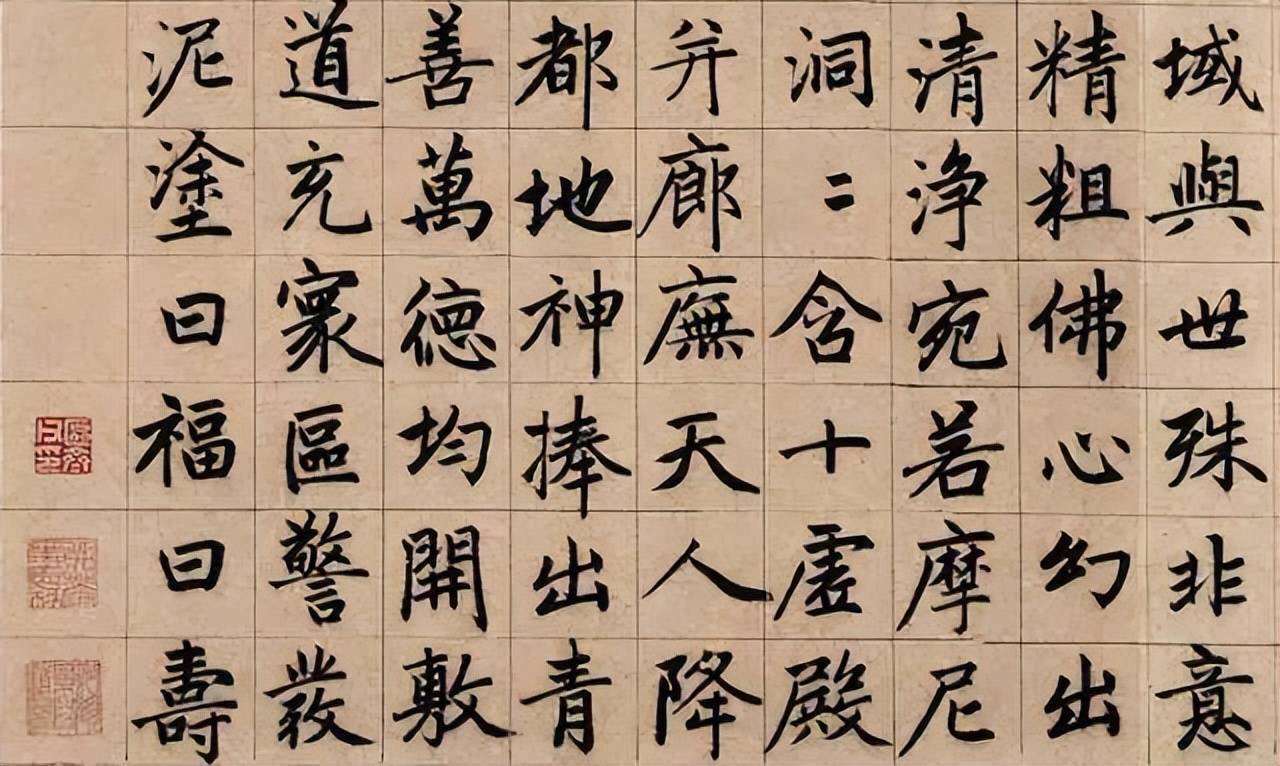 域與世殊非意
精粗佛心幻出
清淨宛若摩尼
洞二含十虛殿
并廊廡天人降
都地神捧出青
善萬德均開敷
道充寰區警發
泥塗曰福曰壽